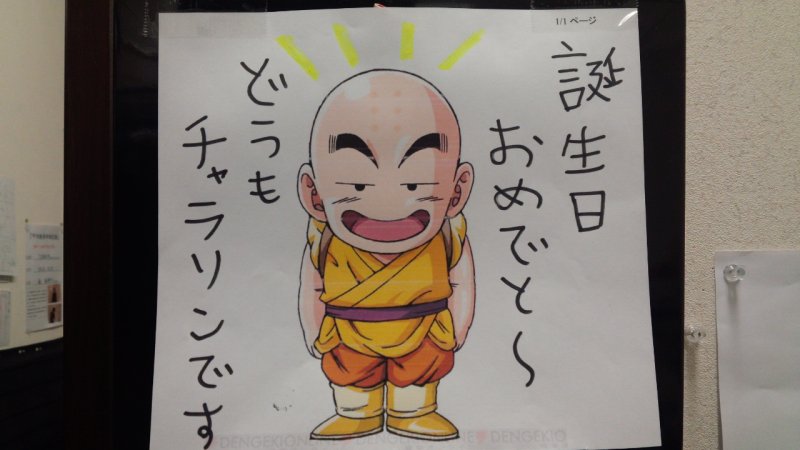 1/1 ページ
誕生日
おめでと〜
どうも
チャラリンです
DENGEKIONLINE DENGEKIONLINE DENGEKIO